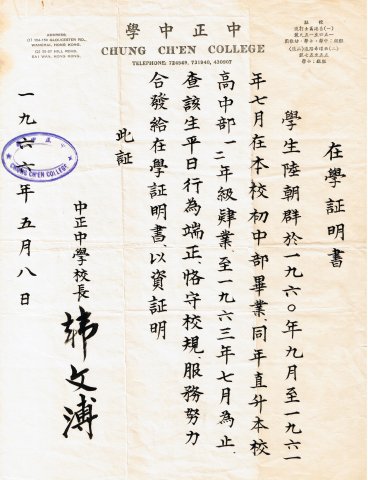 中正中學
CHUNG CH'EN COLLEGE
TELEPHONE: 724569, 731940, 430907
ADDRESS:
GLOUCESTER RD.,
WANCHAI, HONG KONG.
HILL ROAD,
SAI WAN, HONG KONG.
在學証明書
學生陸朝群於一九六〇年九月至一九六一
年七月在本校初中部畢業、同年直升本校
高中部一二年級肄業至一九六三年七月為止、
查該生平日行為端正、恪守校規、服務努力
合發給在學証明書、以資証明
此証
中正中學校長 韓文溥
一九六六年五月八日
CHUNG CH'EN COLLEGE